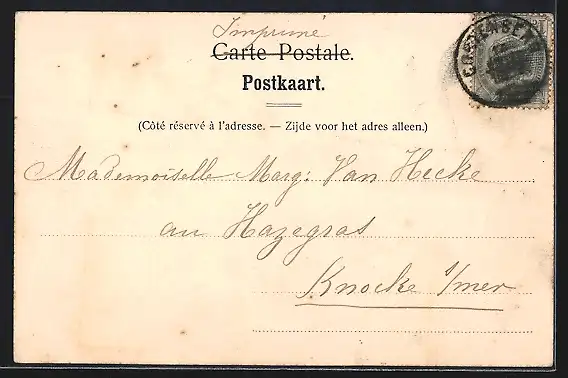 Imprimé
Carte Postale.
Postkaart.
(Côté réservé à l'adresse. — Zijde voor het adres alleen.)
Mademoiselle Marg: Van Hecke
au Hazegras
Knocke s/mer